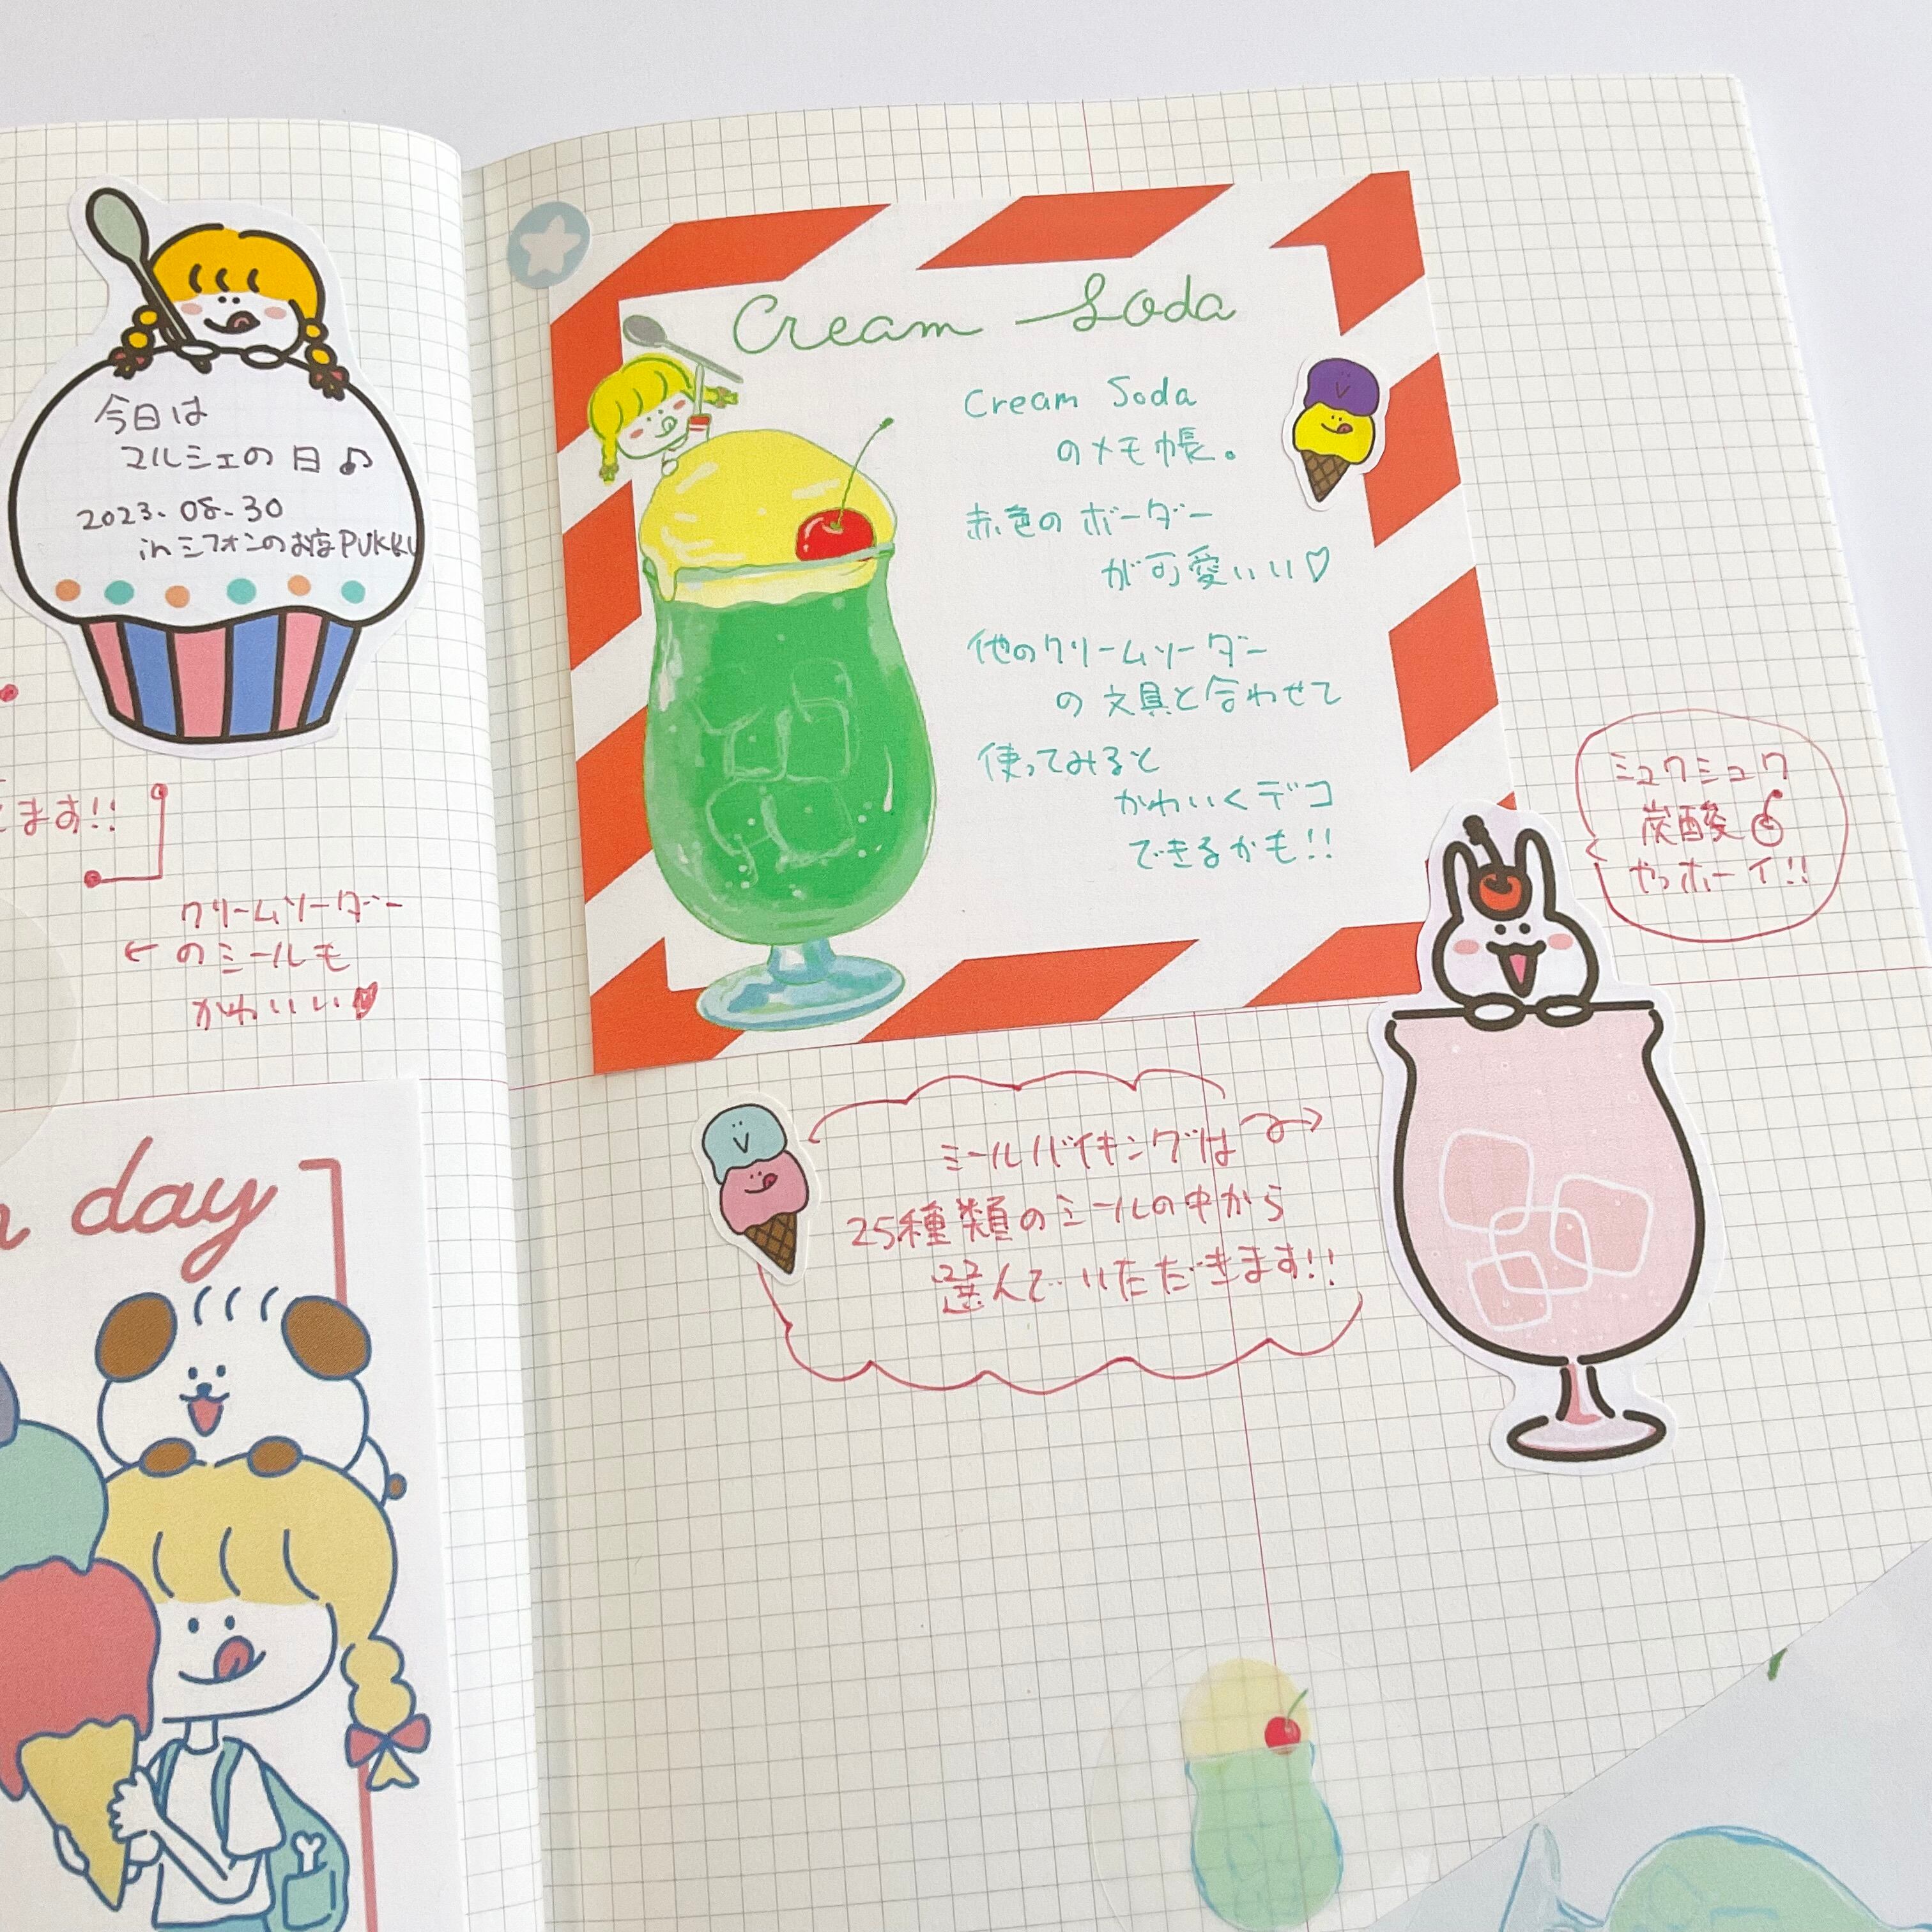 今日は
マルシェの日♪
2023.08.30
inシフォンのお店PUKKU
ます!!
クリームソーダー
← のシールも
かわいい♥
day
Cream Soda
Cream Soda
のメモ帳。
赤色のボーダー
が可愛いい♡
他のクリームソーダー
の文具と合わせて
使ってみると
かわいくデコ
できるかも!!
シュワシュワ
炭酸
やっホーイ!!
シールバイキングは
25種類のシールの中から
選んでいただきます!!